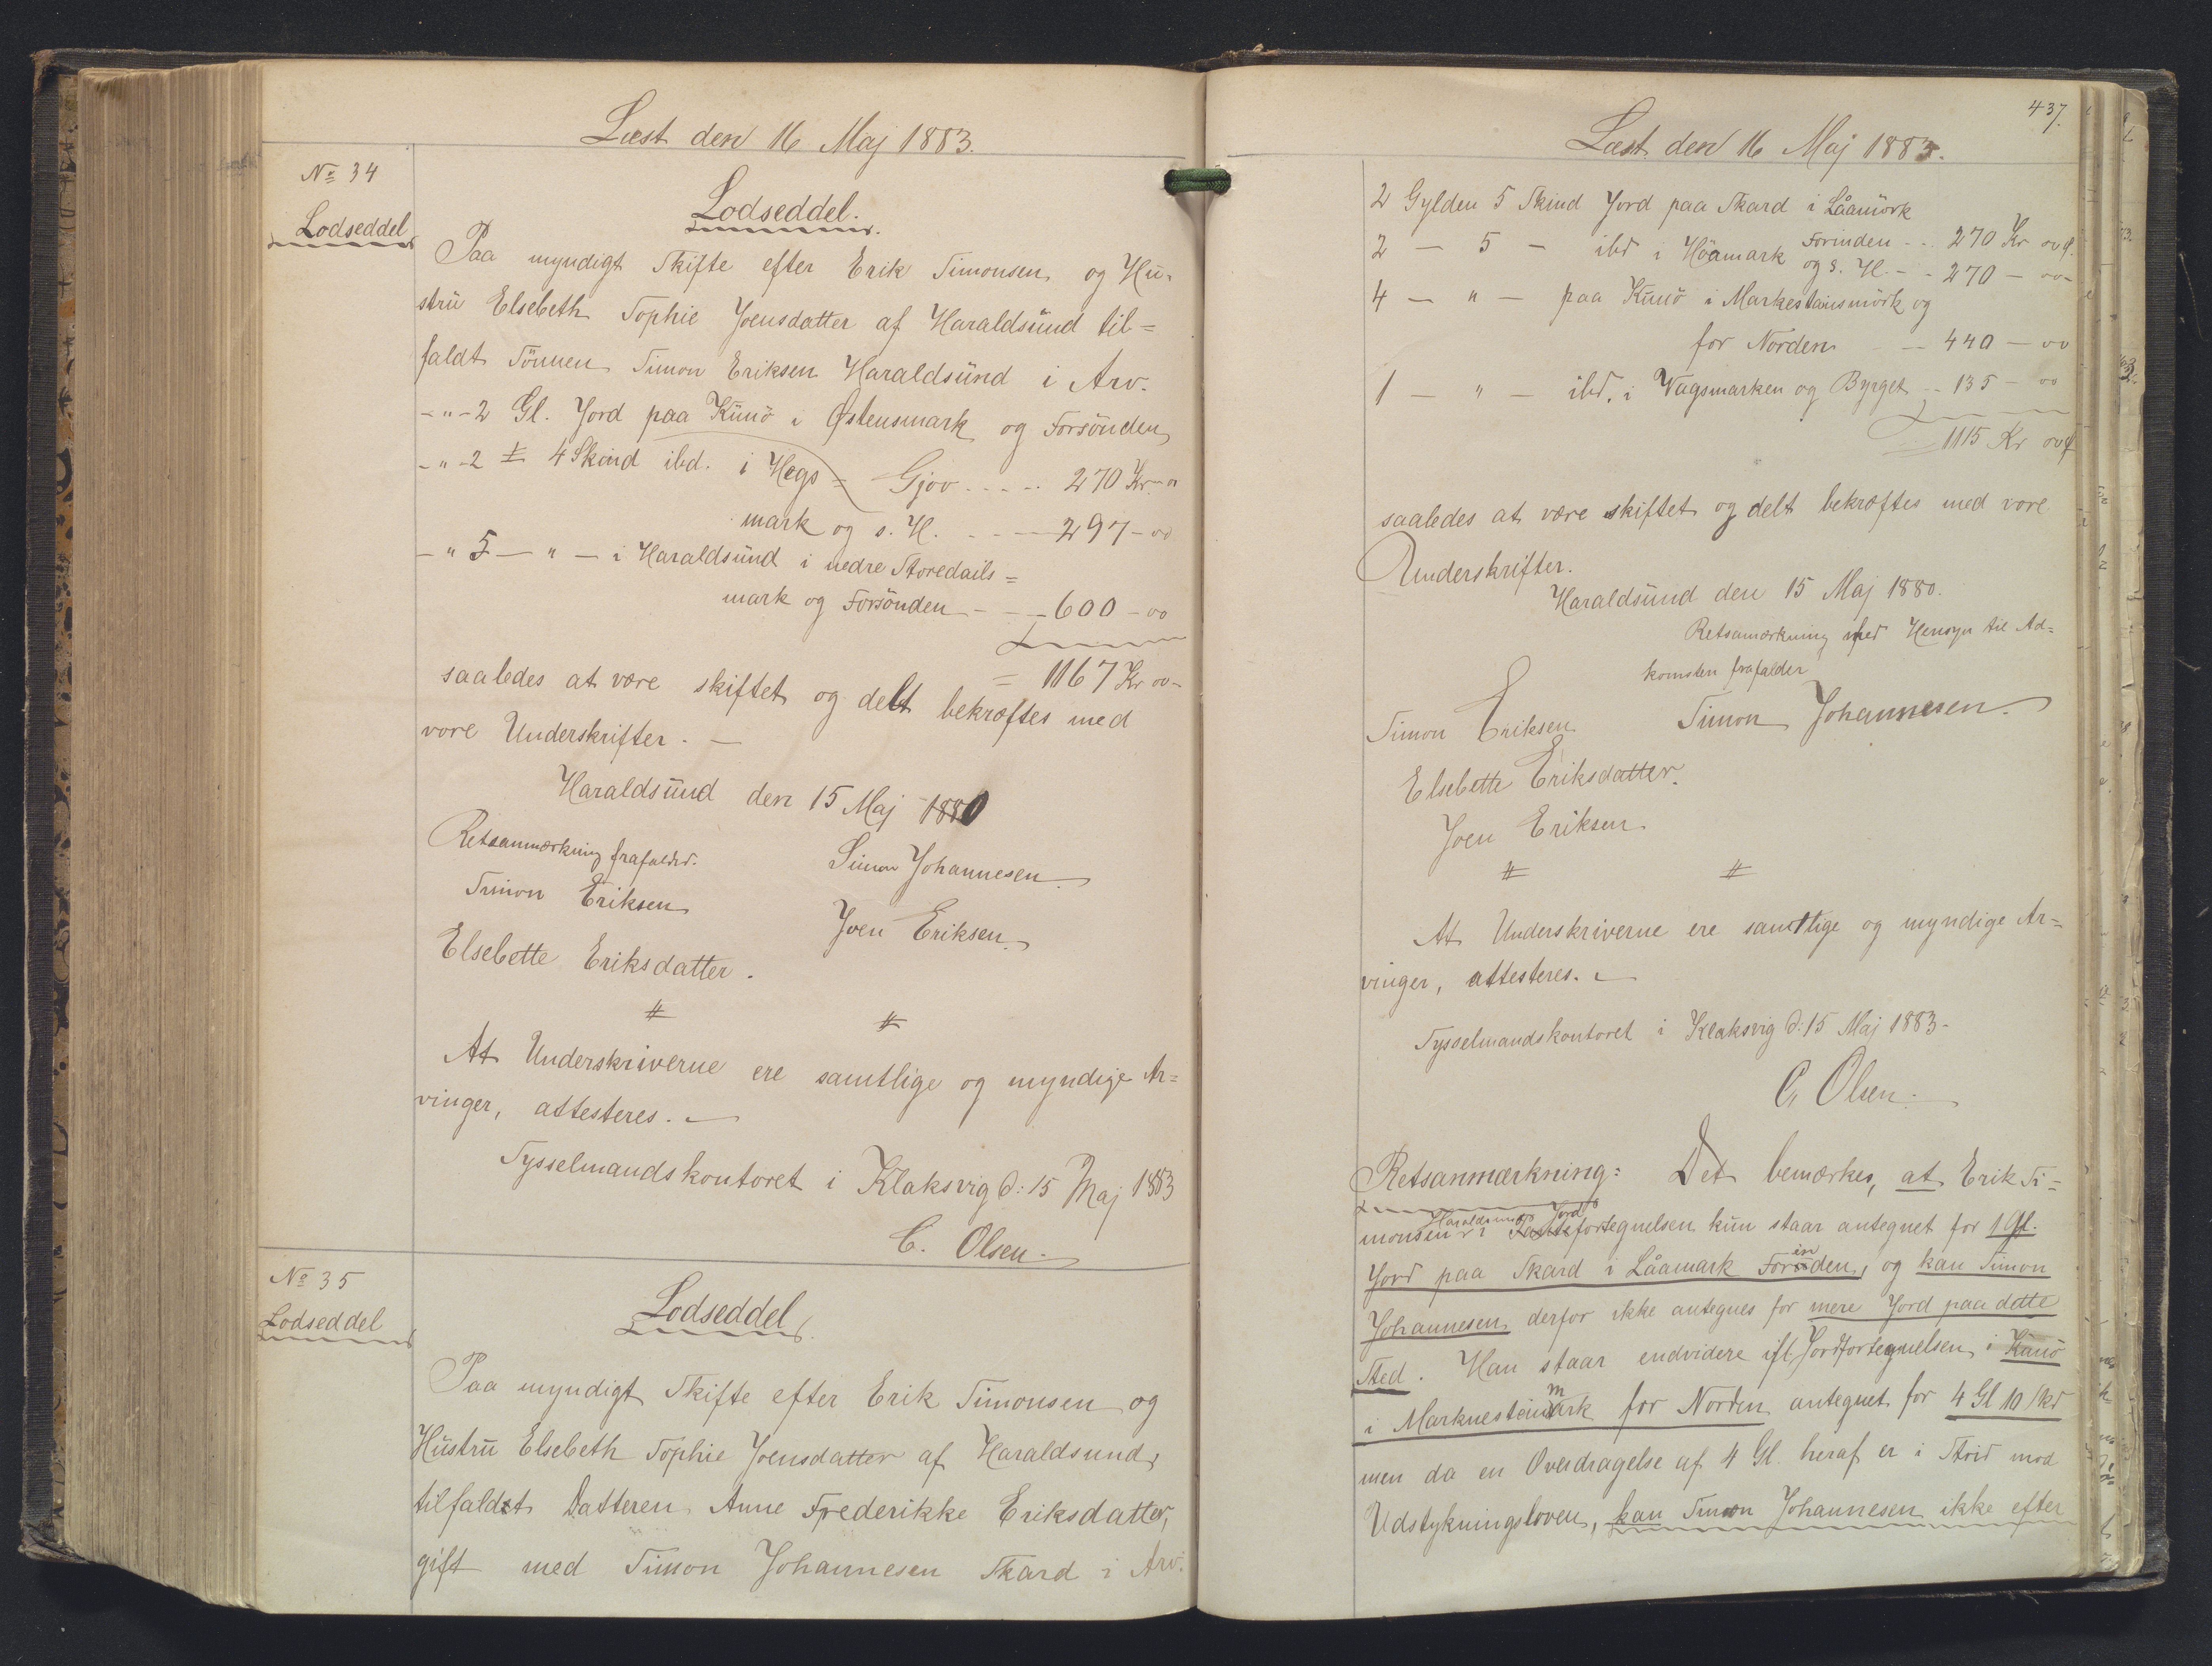 Læst den 16 Maj 1883.
No 34
Lodseddel
Lodseddel.
Paa myndigt Skifte efter Erik Simonsen og Hu-
stru Elsebeth Sophie Joensdatter af Haraldsund til=
faldt Sönnen Simon Eriksen Haraldsund i Arv.
-"-2 Gl. Jord paa Kunö i Østensmark og Forsönden
-"-2 " 4 Skind ibd. i Hegs= Gjov ---- 270 Kr "
mark og s. H. ---- 297-00
-"5-"- i Haraldsund i nedre Storedails=
mark og Forsönden --- 600-00
= 1167 Kr 00-
saaledes at være skiftet og delt bekræftes med
vore Underskrifter. -
Haraldsund den 15 Maj 1880
Retsanmærkning frafaldes.
Simon Johannesen
Simon Eriksen
Joen Eriksen
Elsebette Eriksdatter.
# #
At Underskriverne ere samtlige og myndige Ar=
vinger, attesteres. -
Sysselmandskontoret i Klaksvig d: 15 Maj 1883
C. Olsen
No 35
Lodseddel
Lodseddel.
Paa myndigt Skifte efter Erik Simonsen og
Hustru Elsebeth Sophie Joensdatter af Haraldsund,
tilfaldt Datteren Anne Frederikke Eriksdatter,
gift med Simon Johannesen Skard i Arv:
437.
Læst den 16 Maj 1883.
2 Gylden 5 Skind Jord paa Skard i Låamörk
Forinden -- 270 Kr 00
2 - 5 - ibd i Höamark og s. H. -- 270 - 00-
4 - " - paa Kunö i Markestainsmörk og
for Norden -- 440 - 00
1 - " - ibd. i Vagsmarken og Byrget -- 135 - 00
1115 Kr 00
saaledes at være skiftet og delt bekræftes med vore
Underskrifter.
Haraldsund den 15 Maj 1880.
Retsanmærkning med Hensyn til Ad=
komsten frafalder
Simon Eriksen Simon Johannesen.
Elsebette Eriksdatter.
Joen Eriksen
# #
At Underskriverne ere samtlige og myndige Ar=
vinger, attesteres. -
Sysselmandskontoret i Klaksvig d: 15 Maj 1883-
C. Olsen.
Retsanmærkning: Det bemærkes, at Erik Si=
Haraldsunds Jord
monsen i fortegnelsen kun staar antegnet for 1 Gl.
Jord paa Skard i Låamark Forinden, og kan Simon
Johannesen derfor ikke antegnes for mere Jord paa dette
Sted. Han staar endvidere ifl. Jordfortegnelsen i Kunö
i Marknesteinmark for Norden antegnet for 4 Gl 10 Skd
men da en Overdragelse af 4 Gl. heraf er i Strid mod
Udstykningsloven, kan Simon Johannesen ikke efter